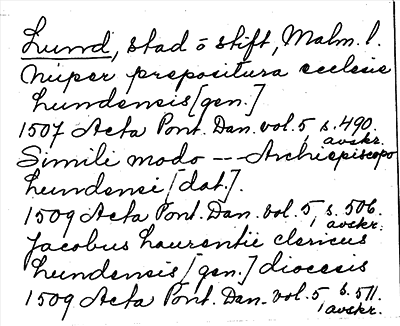 Lund, stad o stift, Malm. l.
Nuper prepositura ecclesie
Lundensis [gen.]
1507 Acta Pont. Dan. vol. 5, s. 490.
avskr.
Simili modo --- Archiepiscopo
Lundensi [dat.].
1509 Acta Pont. Dan. vol. 5, s. 506.
avskr.
Jacobus Laurentii clericus
Lundensis [gen.] diocesis
1509 Acta Pont. Dan. vol. 5, s. 511.
avskr.